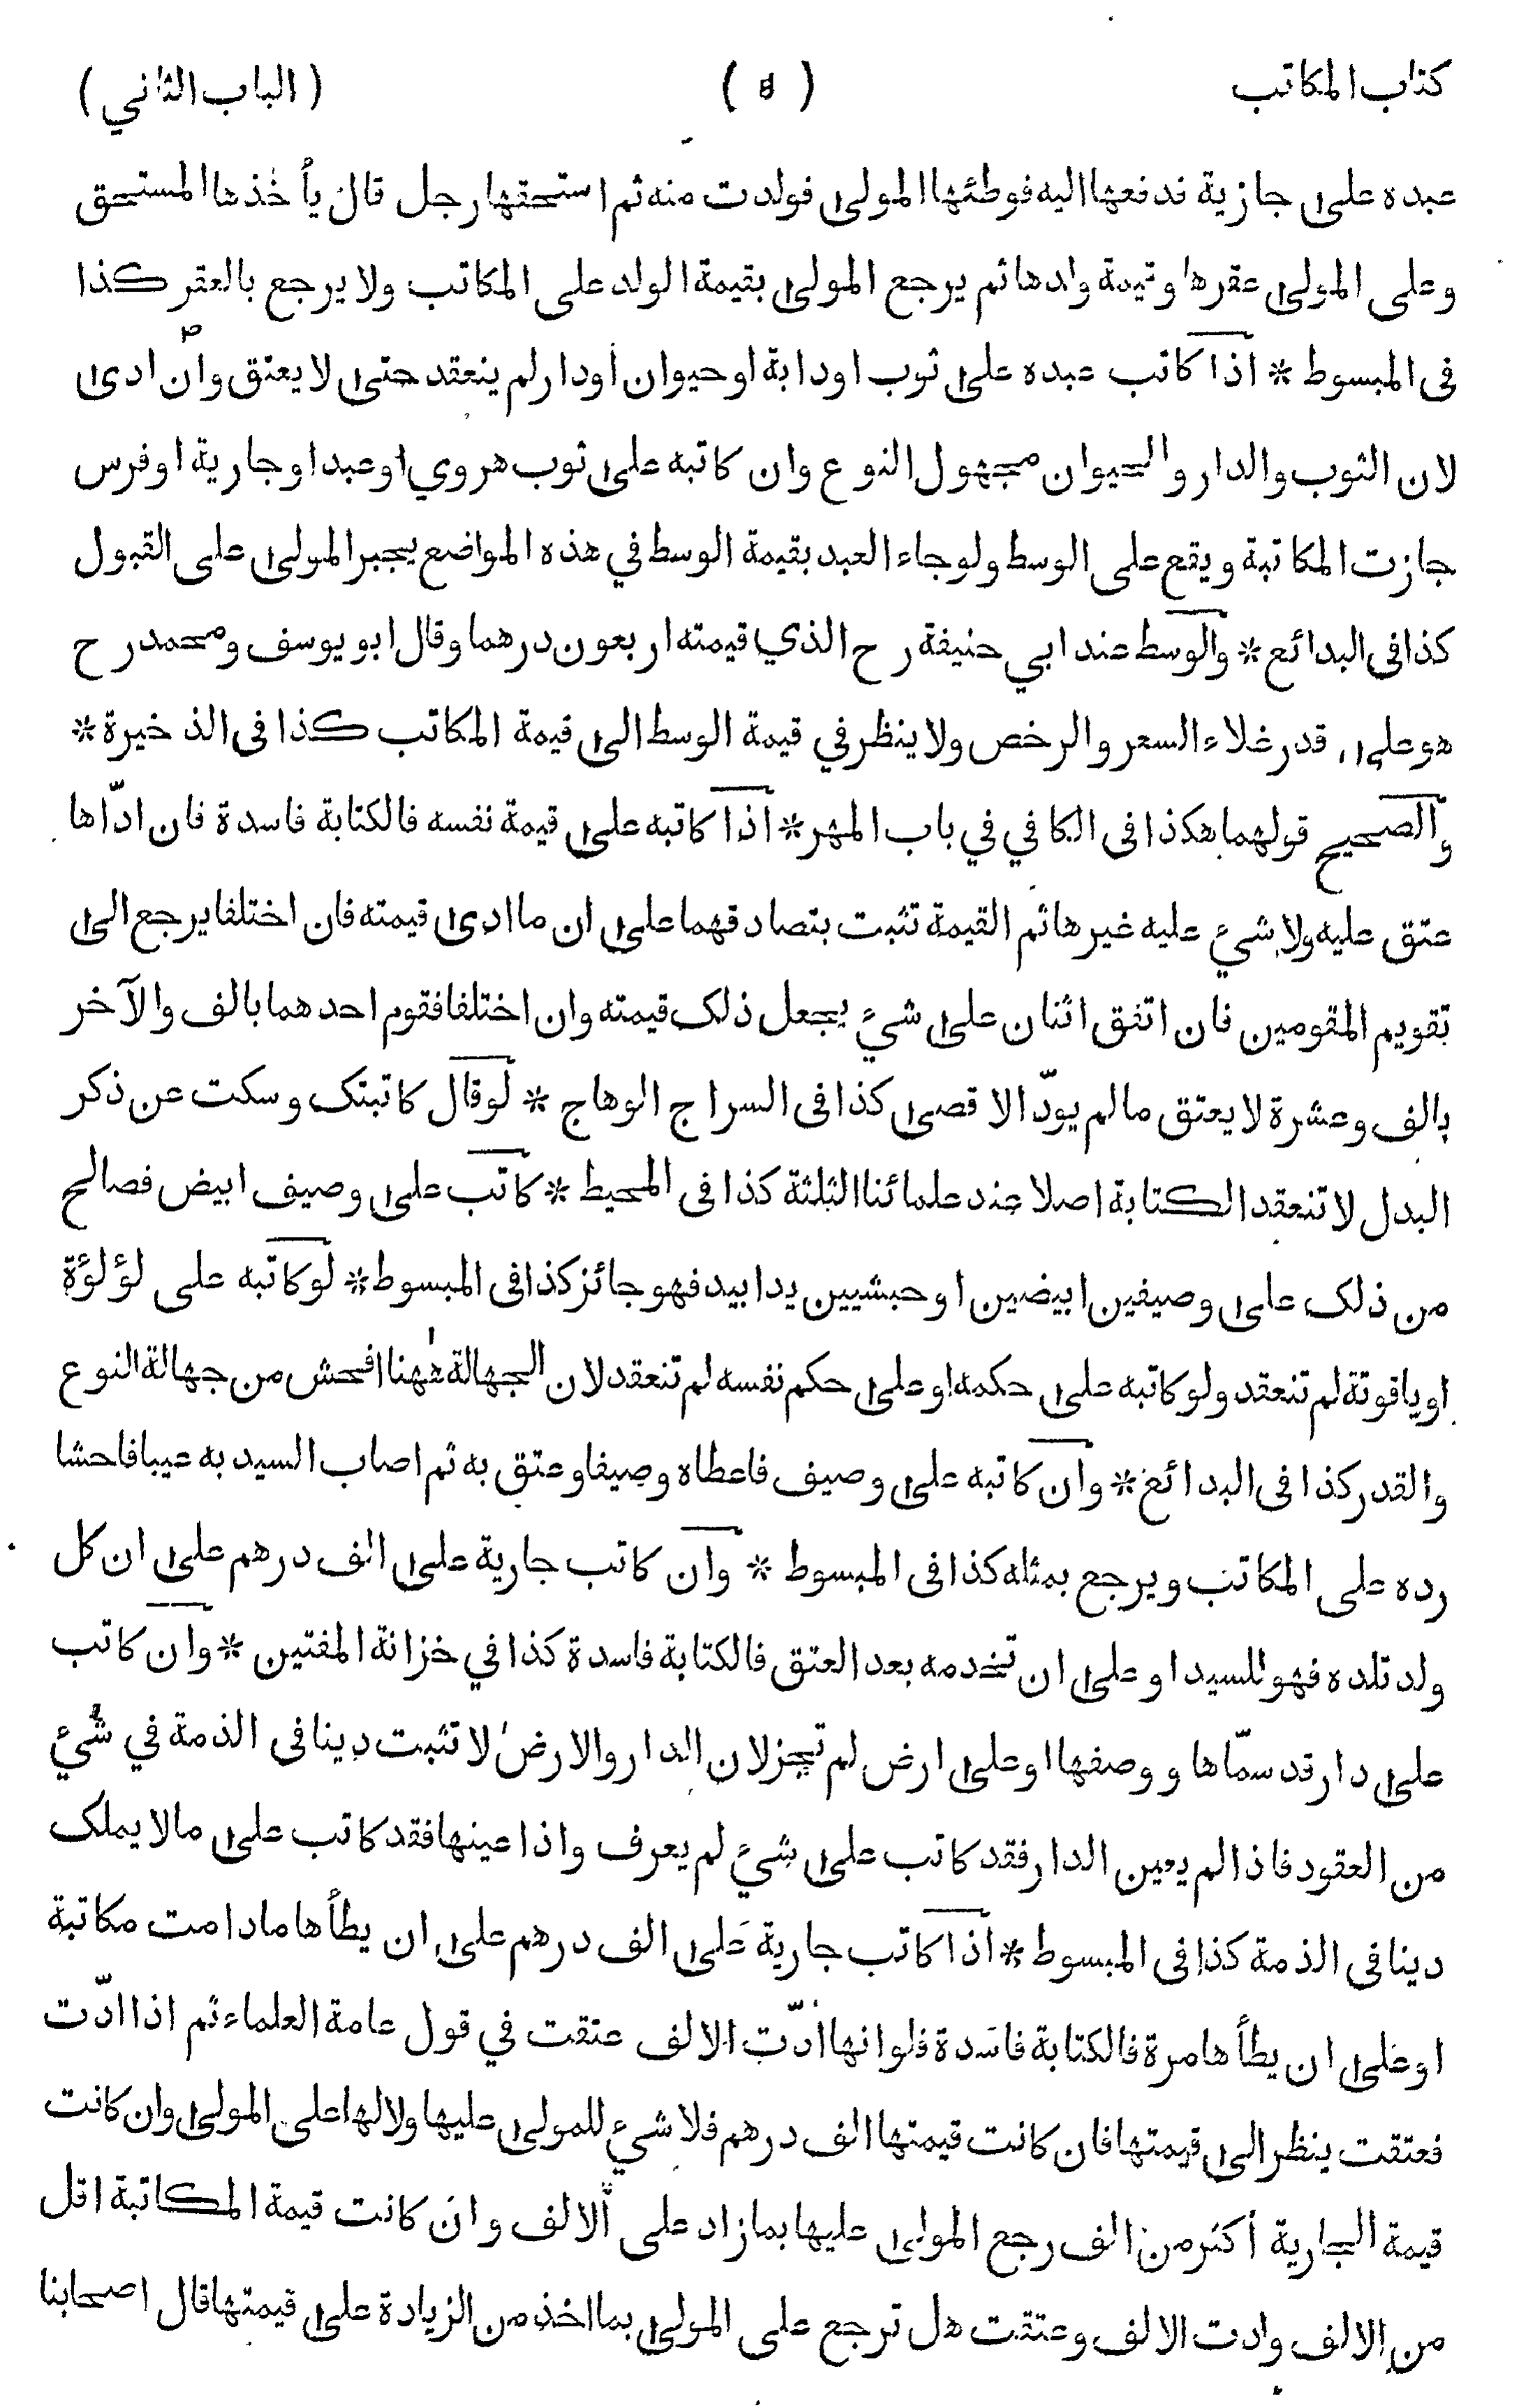 كتاب المكاتب ( ٥ ) ( الباب الثاني )
عبده على جارية فدفعها اليه فوطئها المولى فولدت منه ثم استحقها رجل قال يأخذها المستحق
وعلى المولى عقرها وقيمة ولدها ثم يرجع المولى بقيمة الولد على المكاتب ولا يرجع بالعقر كذا
فى المبسوط * اذا كاتب عبده على ثوب او دابة او حيوان أو دار لم ينعقد حتى لا يعتق وان ادى
لان الثوب والدار والحيوان مجهول النوع وان كاتبه على ثوب هروي او عبد او جارية او فرس
جازت المكاتبة ويقع على الوسط ولو جاء العبد بقيمة الوسط في هذه المواضع يجبر المولى على القبول
كذا فى البدائع * والوسط عند ابي حنيفة رح الذي قيمته اربعون درهما وقال ابو يوسف ومحمد رح
هو على قدر غلاء السعر والرخص ولا ينظر في قيمة الوسط الى قيمة المكاتب كذا فى الذخيرة *
والصحيح قولهما هكذا فى الكافي في باب المهر * اذا كاتبه على قيمة نفسه فالكتابة فاسدة فان ادّاها
عتق عليه ولا شيء عليه غيرها ثم القيمة تثبت بتصادقهما على ان ما ادى قيمته فان اختلفا يرجع الى
تقويم المقومين فان اتفق اثنان على شيء يجعل ذلک قيمته وان اختلفا فقوم احدهما بالف والآخر
بالف وعشرة لا يعتق ما لم يودّ الاقصى كذا فى السراج الوهاج * لو قال كاتبتک وسكت عن ذكر
البدل لا تنعقد الكتابة اصلا عند علمائنا الثلثة كذا فى المحيط * كاتب على وصيف ابيض فصالح
من ذلک على وصيفين ابيضين او حبشيين يدا بيد فهو جائز كذا فى المبسوط * لو كاتبه على لؤلؤة
او ياقوتة لم تنعقد ولو كاتبه على حكمه او على حكم نفسه لم تنعقد لان الجهالة ههنا افحش من جهالة النوع
والقدر كذا فى البدائع * وان كاتبه على وصيف فاعطاه وصيفا وعتق به ثم اصاب السيد به عيبا فاحشا
رده على المكاتب ويرجع بمثله كذا فى المبسوط * وان كاتب جارية على الف درهم على ان كل
ولد تلده فهو للسيد او على ان تخدمه بعد العتق فالكتابة فاسدة كذا في خزانة المفتين * وان كاتب
على دار قد سمّاها ووصفها او على ارض لم تجز لان الدار والارض لا تثبت دينا فى الذمة في شيء
من العقود فاذا لم يعين الدار فقد كاتب على شيء لم يعرف واذا عينها فقد كاتب على ما لا يملک
دينا فى الذمة كذا فى المبسوط * اذا كاتب جارية على الف درهم على ان يطأها ما دامت مكاتبة
او على ان يطأها مرة فالكتابة فاسدة فلو انها ادّت الالف عتقت في قول عامة العلماء ثم اذا ادّت
فعتقت ينظر الى قيمتها فان كانت قيمتها الف درهم فلا شيء للمولى عليها ولا لها على المولى وان كانت
قيمة الجارية أكثر من الف رجع المولى عليها بما زاد على الالف وان كانت قيمة المكاتبة اقل
من الالف وادت الالف وعتقت هل ترجع على المولى بما اخذ من الزيادة على قيمتها قال اصحابنا